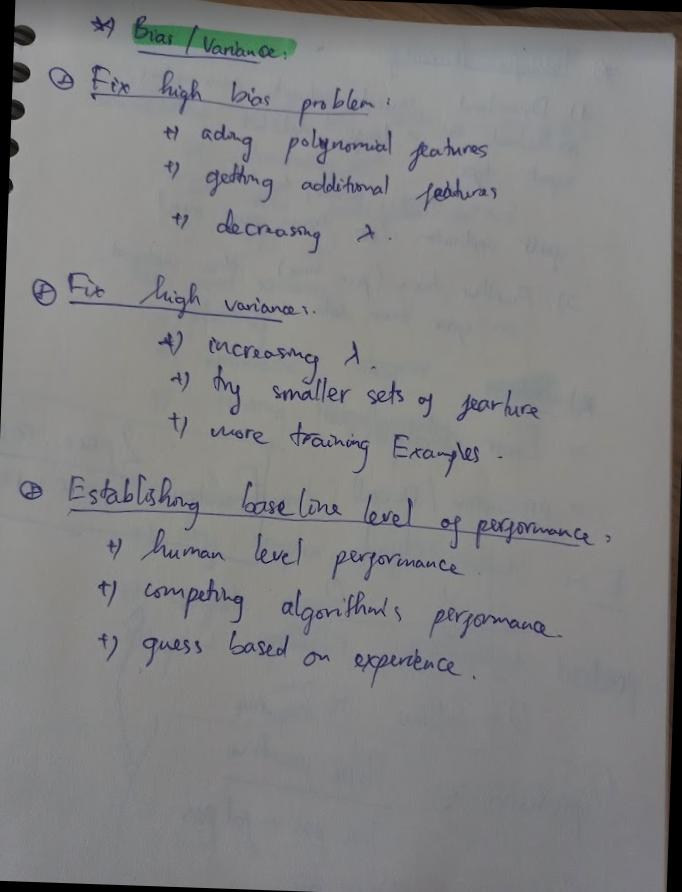 *) Bias / Variance:
⊕ Fix high bias problem:
+) ading polynomial features
+) getting additional features
+) decreasing λ.
⊕ Fix high variance:.
+) increasing λ.
+) try smaller sets of fearture
+) more training Examples.
⊕ Establishing base line level of performance:
+) human level performance.
+) competing algorithms performance.
+) guess based on experience.